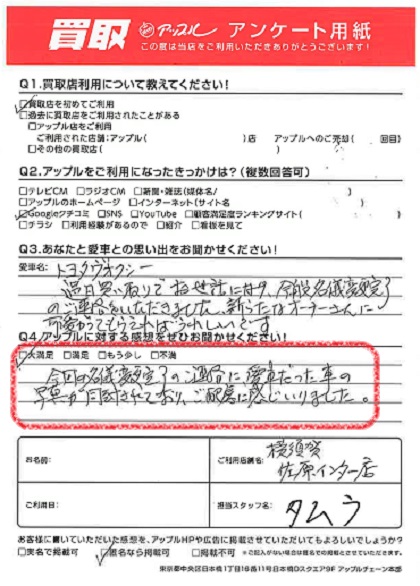 買取 アップル アンケート用紙
この度は当店をご利用いただきありがとうございます!
Q1.買取店利用について教えてください!
☑買取店を初めてご利用
□過去に買取店をご利用されたことがある
□アップル店をご利用
ご利用された店舗:アップル( )店 アップルへのご売却( 回目)
□その他の買取店( )
Q2.アップルをご利用になったきっかけは?(複数回答可)
□テレビCM □ラジオCM □新聞・雑誌(媒体名/ )
□アップルのホームページ □インターネット(サイト名 )
☑Googleクチコミ □SNS □YouTube □顧客満足度ランキングサイト( )
□チラシ □利用経験があるので □紹介 □看板を見て
Q3.あなたと愛車との思い出をお聞かせください!
愛車名: トヨタヴォクシー
過日買い取りでお世話に付き、今般名義変更完了
のご連絡をいただきました。新らたなオーナーさんに
可愛がってもらえればうれしいです
Q4.アップルに対する感想をぜひお聞かせください!
☑大満足 □満足 □もう少し □不満
今回の名義変更完了のご連絡に愛車だった車の
写真が同封されており、ご配慮に感じいりました。
お名前: ご利用店舗名: 横須賀
佐原インター店
ご利用日: 担当スタッフ名: タムラ
お客様に書いていただいた感想を、アップルHPや広告に掲載させていただいてもよろしいでしょうか?
□実名で掲載可 ☑匿名なら掲載可 □掲載不可 ※ご記入がない場合は匿名での掲載とさせていただきます。
東京都中央区日本橋1丁目16番11号日本橋Dスクエア9F アップルチェーン本部